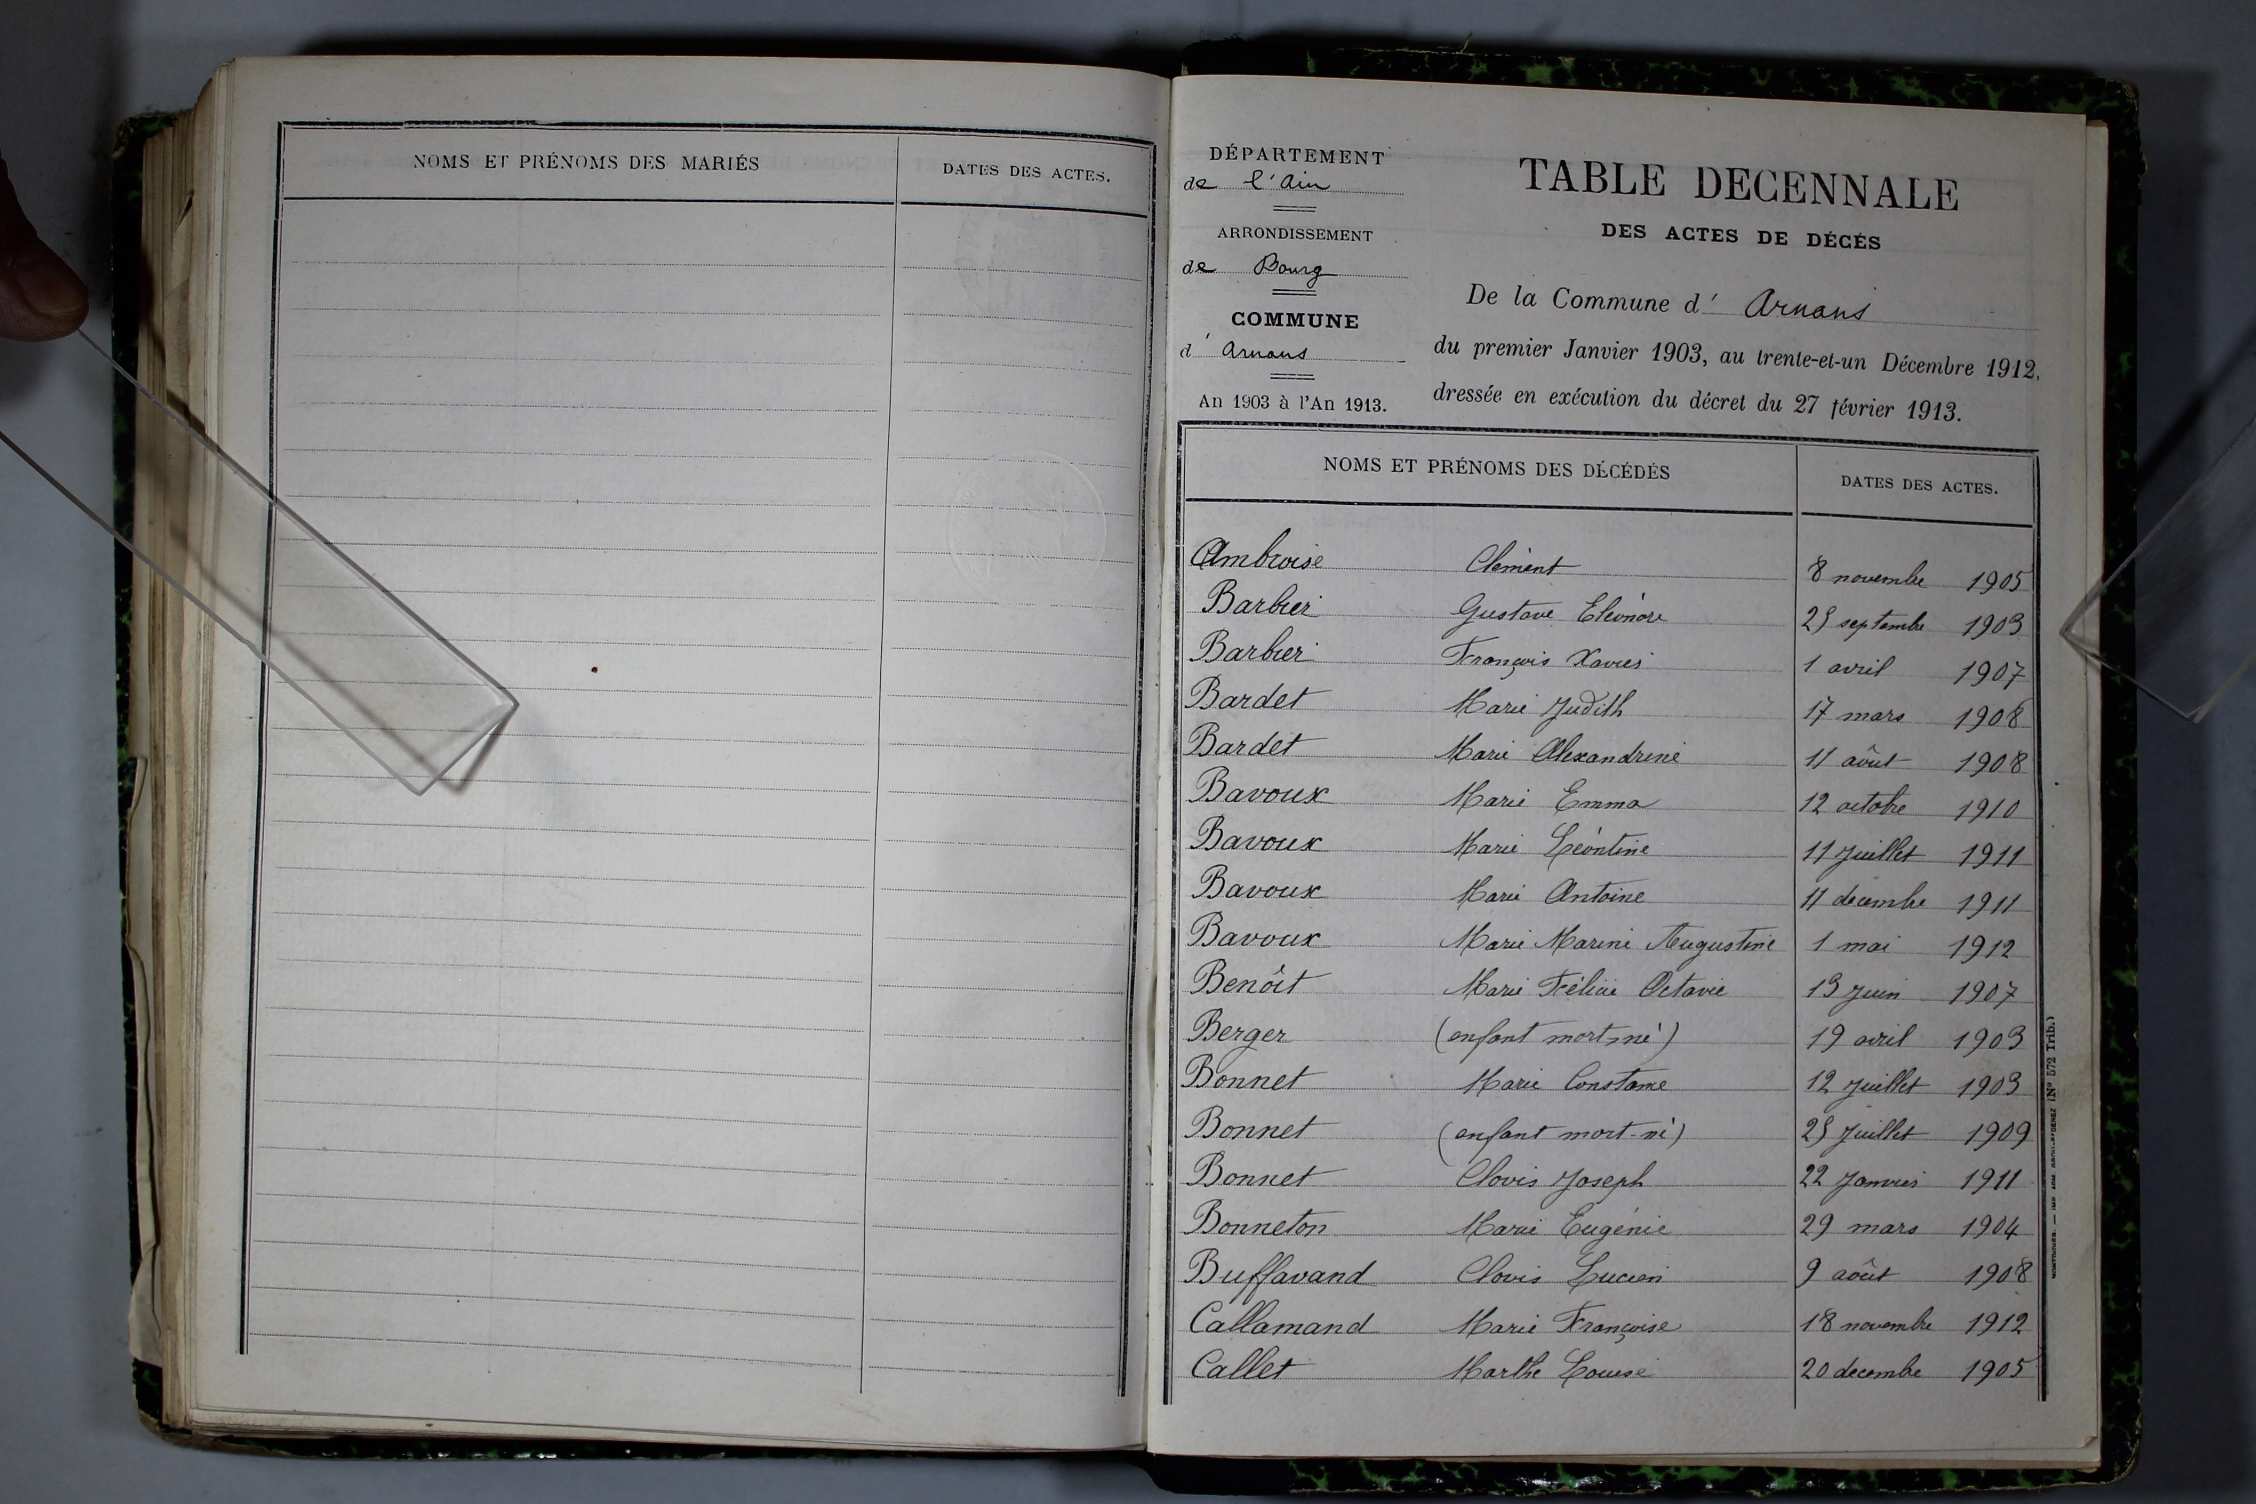 NOMS ET PRÉNOMS DES MARIÉS DATES DES ACTES.
DÉPARTEMENT
de l'Ain
ARRONDISSEMENT
de Bourg
COMMUNE
d' Arnans
An 1903 à l'An 1913.
TABLE DECENNALE
DES ACTES DE DÉCÉS
De la Commune d' Arnans
du premier Janvier 1903, au trente-et-un Décembre 1912,
dressée en exécution du décret du 27 février 1913.
NOMS ET PRÉNOMS DES DÉCÉDÉS DATES DES ACTES.
Ambroise Clément 8 novembre 1905
Barbier Gustave Eléonore 25 septembre 1903
Barbier François Xavier 1 avril 1907
Bardet Marie Judith 17 mars 1908
Bardet Marie Alexandrine 11 août 1908
Bavoux Marie Emma 12 octobre 1910
Bavoux Marie Léontine 11 Juillet 1911
Bavoux Marie Antoine 11 decembre 1911
Bavoux Marie Marine Augustine 1 mai 1912
Benôit Marie Félicie Octavie 13 Juin 1907
Berger (enfant mort-né) 19 avril 1903
Bonnet Marie Constance 12 Juillet 1903
Bonnet (enfant mort-né) 25 Juillet 1909
Bonnet Clovis Joseph 22 Janvier 1911
Bonneton Marie Eugénie 29 mars 1904
Buffavand Clovis Lucien 9 août 1908
Callamand Marie Françoise 18 novembre 1912
Callet Marthe Louise 20 decembre 1905
(N° 572 Trib.)